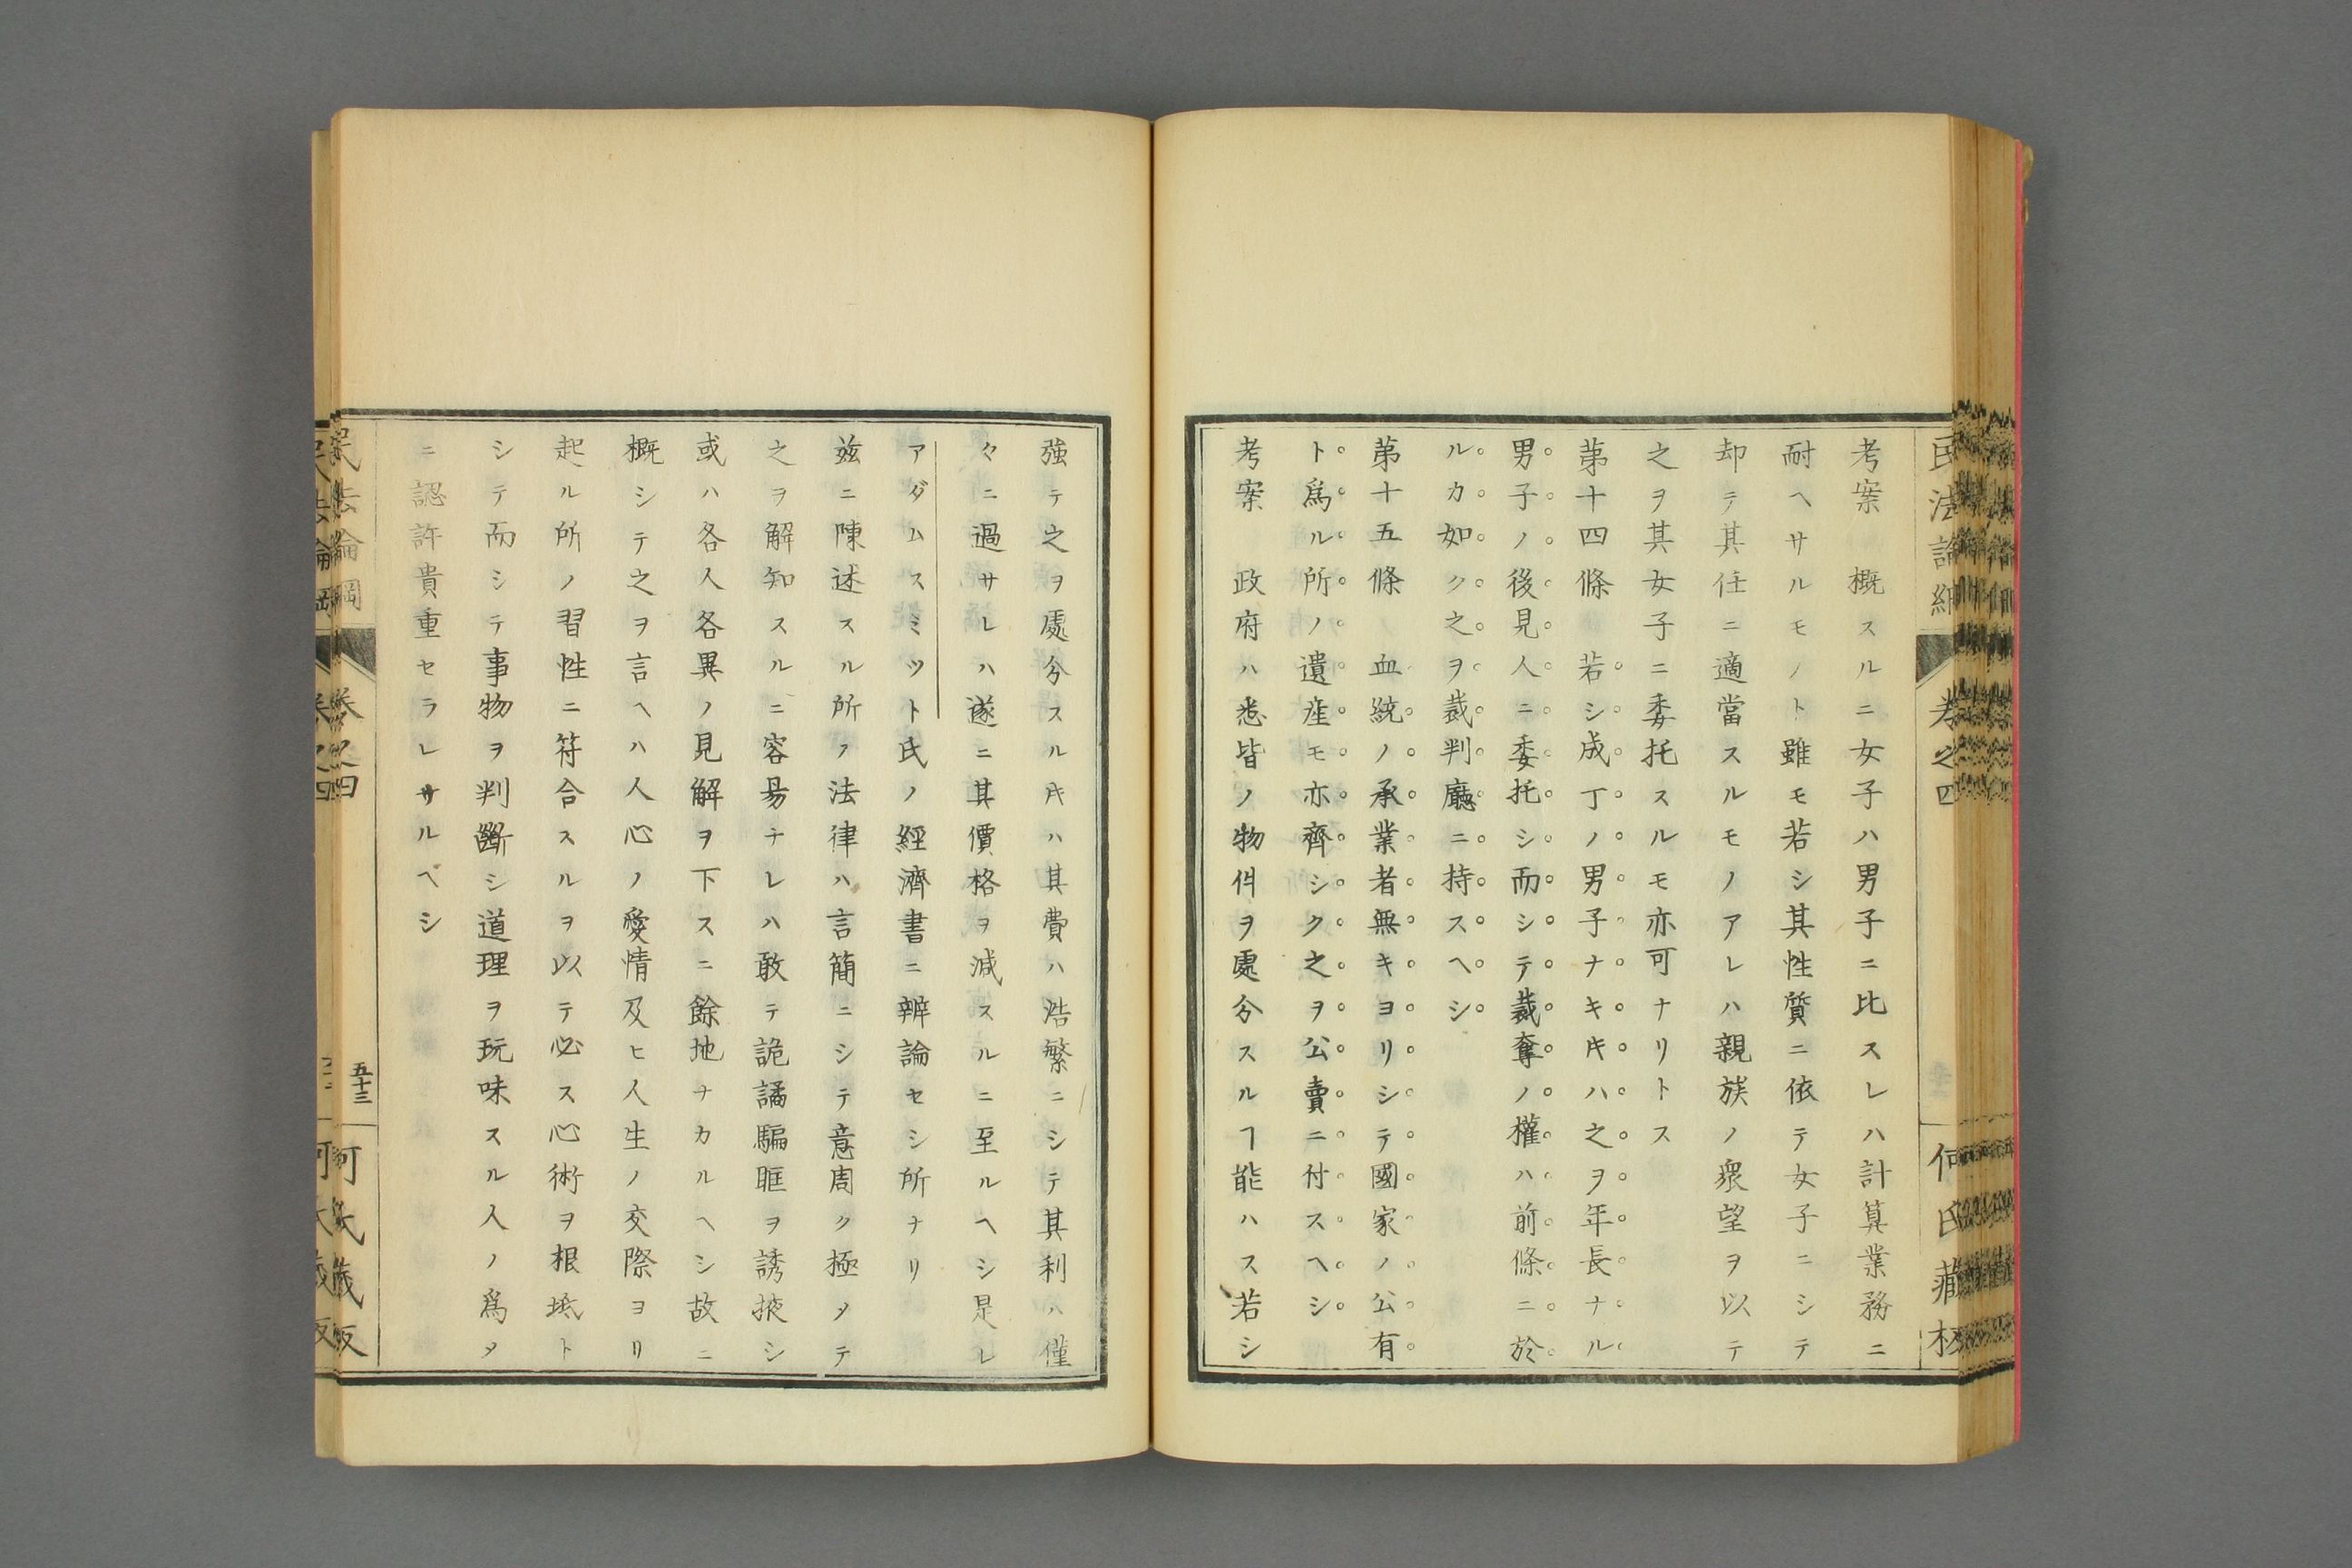 民法論綱
卷之四
何氏藏板
考案　概スルニ女子ハ男子ニ比スレハ計算業務ニ
耐ヘサルモノト雖モ若シ其性質ニ依テ女子ニシテ
却テ其任ニ適當スルモノアレハ親族ノ衆望ヲ以テ
之ヲ其女子ニ委托スルモ亦可ナリトス
第十四條　若シ成丁ノ男子ナキキハ之ヲ年長ナル
男子ノ後見人ニ委托シ而シテ裁奪ノ權ハ前條ニ於
ルカ如ク之ヲ裁判廳ニ持スヘシ
第十五條　血統ノ承業者無キヨリシテ國家ノ公有
ト爲ル所ノ遺産モ亦齊シク之ヲ公賣ニ付スヘシ
考案　政府ハ悉皆ノ物件ヲ處分スルヿ能ハス若シ
強テ之ヲ處分スル𪜈ハ其費ハ浩繁ニシテ其利ハ僅
々ニ過サレハ遂ニ其價格ヲ減スルニ至ルヘシ是レ
アダムスミツト氏ノ經濟書ニ辨論セシ所ナリ
玆ニ陳述スル所ノ法律ハ言簡ニシテ意周ク極メテ
之ヲ解知スルニ容易ナレハ敢テ詭譎騙誆ヲ誘掖シ
或ハ各人各異ノ見解ヲ下スニ餘地ナカルヘシ故ニ
概シテ之ヲ言ヘハ人心ノ愛情及ヒ人生ノ交際ヨリ
起ル所ノ習性ニ符合スルヲ以テ必ス心術ヲ根坻ト
シテ而シテ事物ヲ判斷シ道理ヲ玩味スル人ノ爲メ
ニ認許貴重セラレサルベシ
民法論綱
卷之四
五十三
何氏藏板